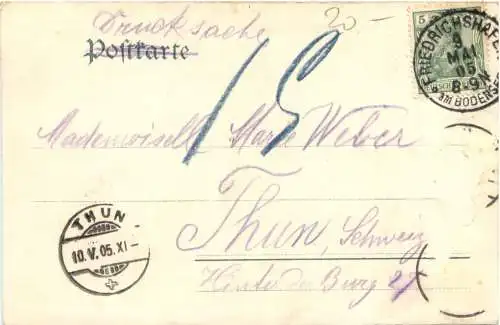 Drucksache
20 -
Postkarte
5
FRIEDRICHSHAFEN
9
MAI
05
8-9N
AM BODENSEE
15
Mademoiselle Marie Weber
Thun, Schweiz
Hinter der Burg 21
THUN
10.V.05.XI-